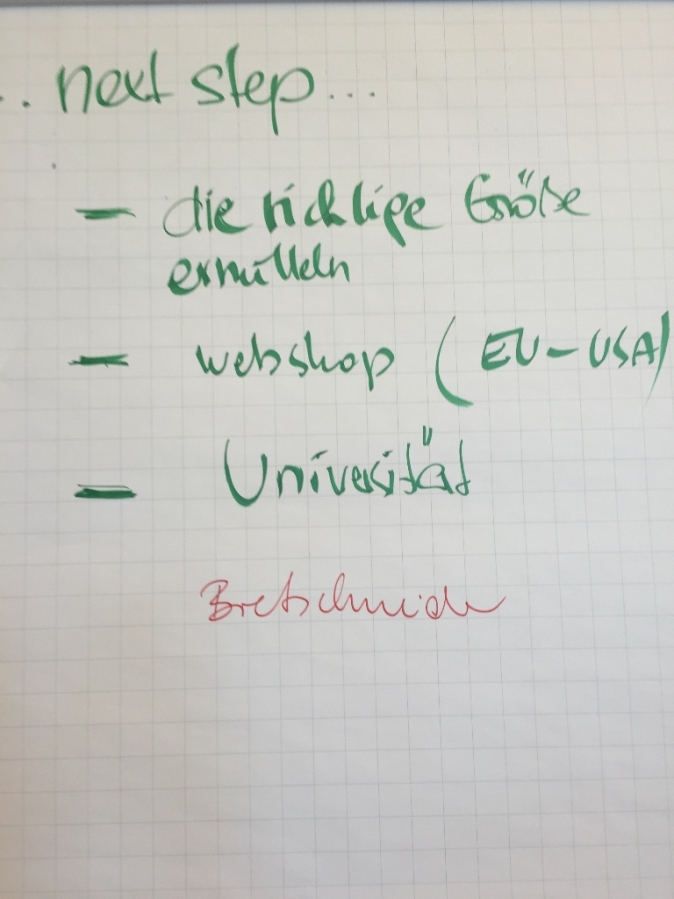 .. next step...
- die richtige Größe
ermitteln
- webshop (EU-USA)
- Universität
Bretschneider